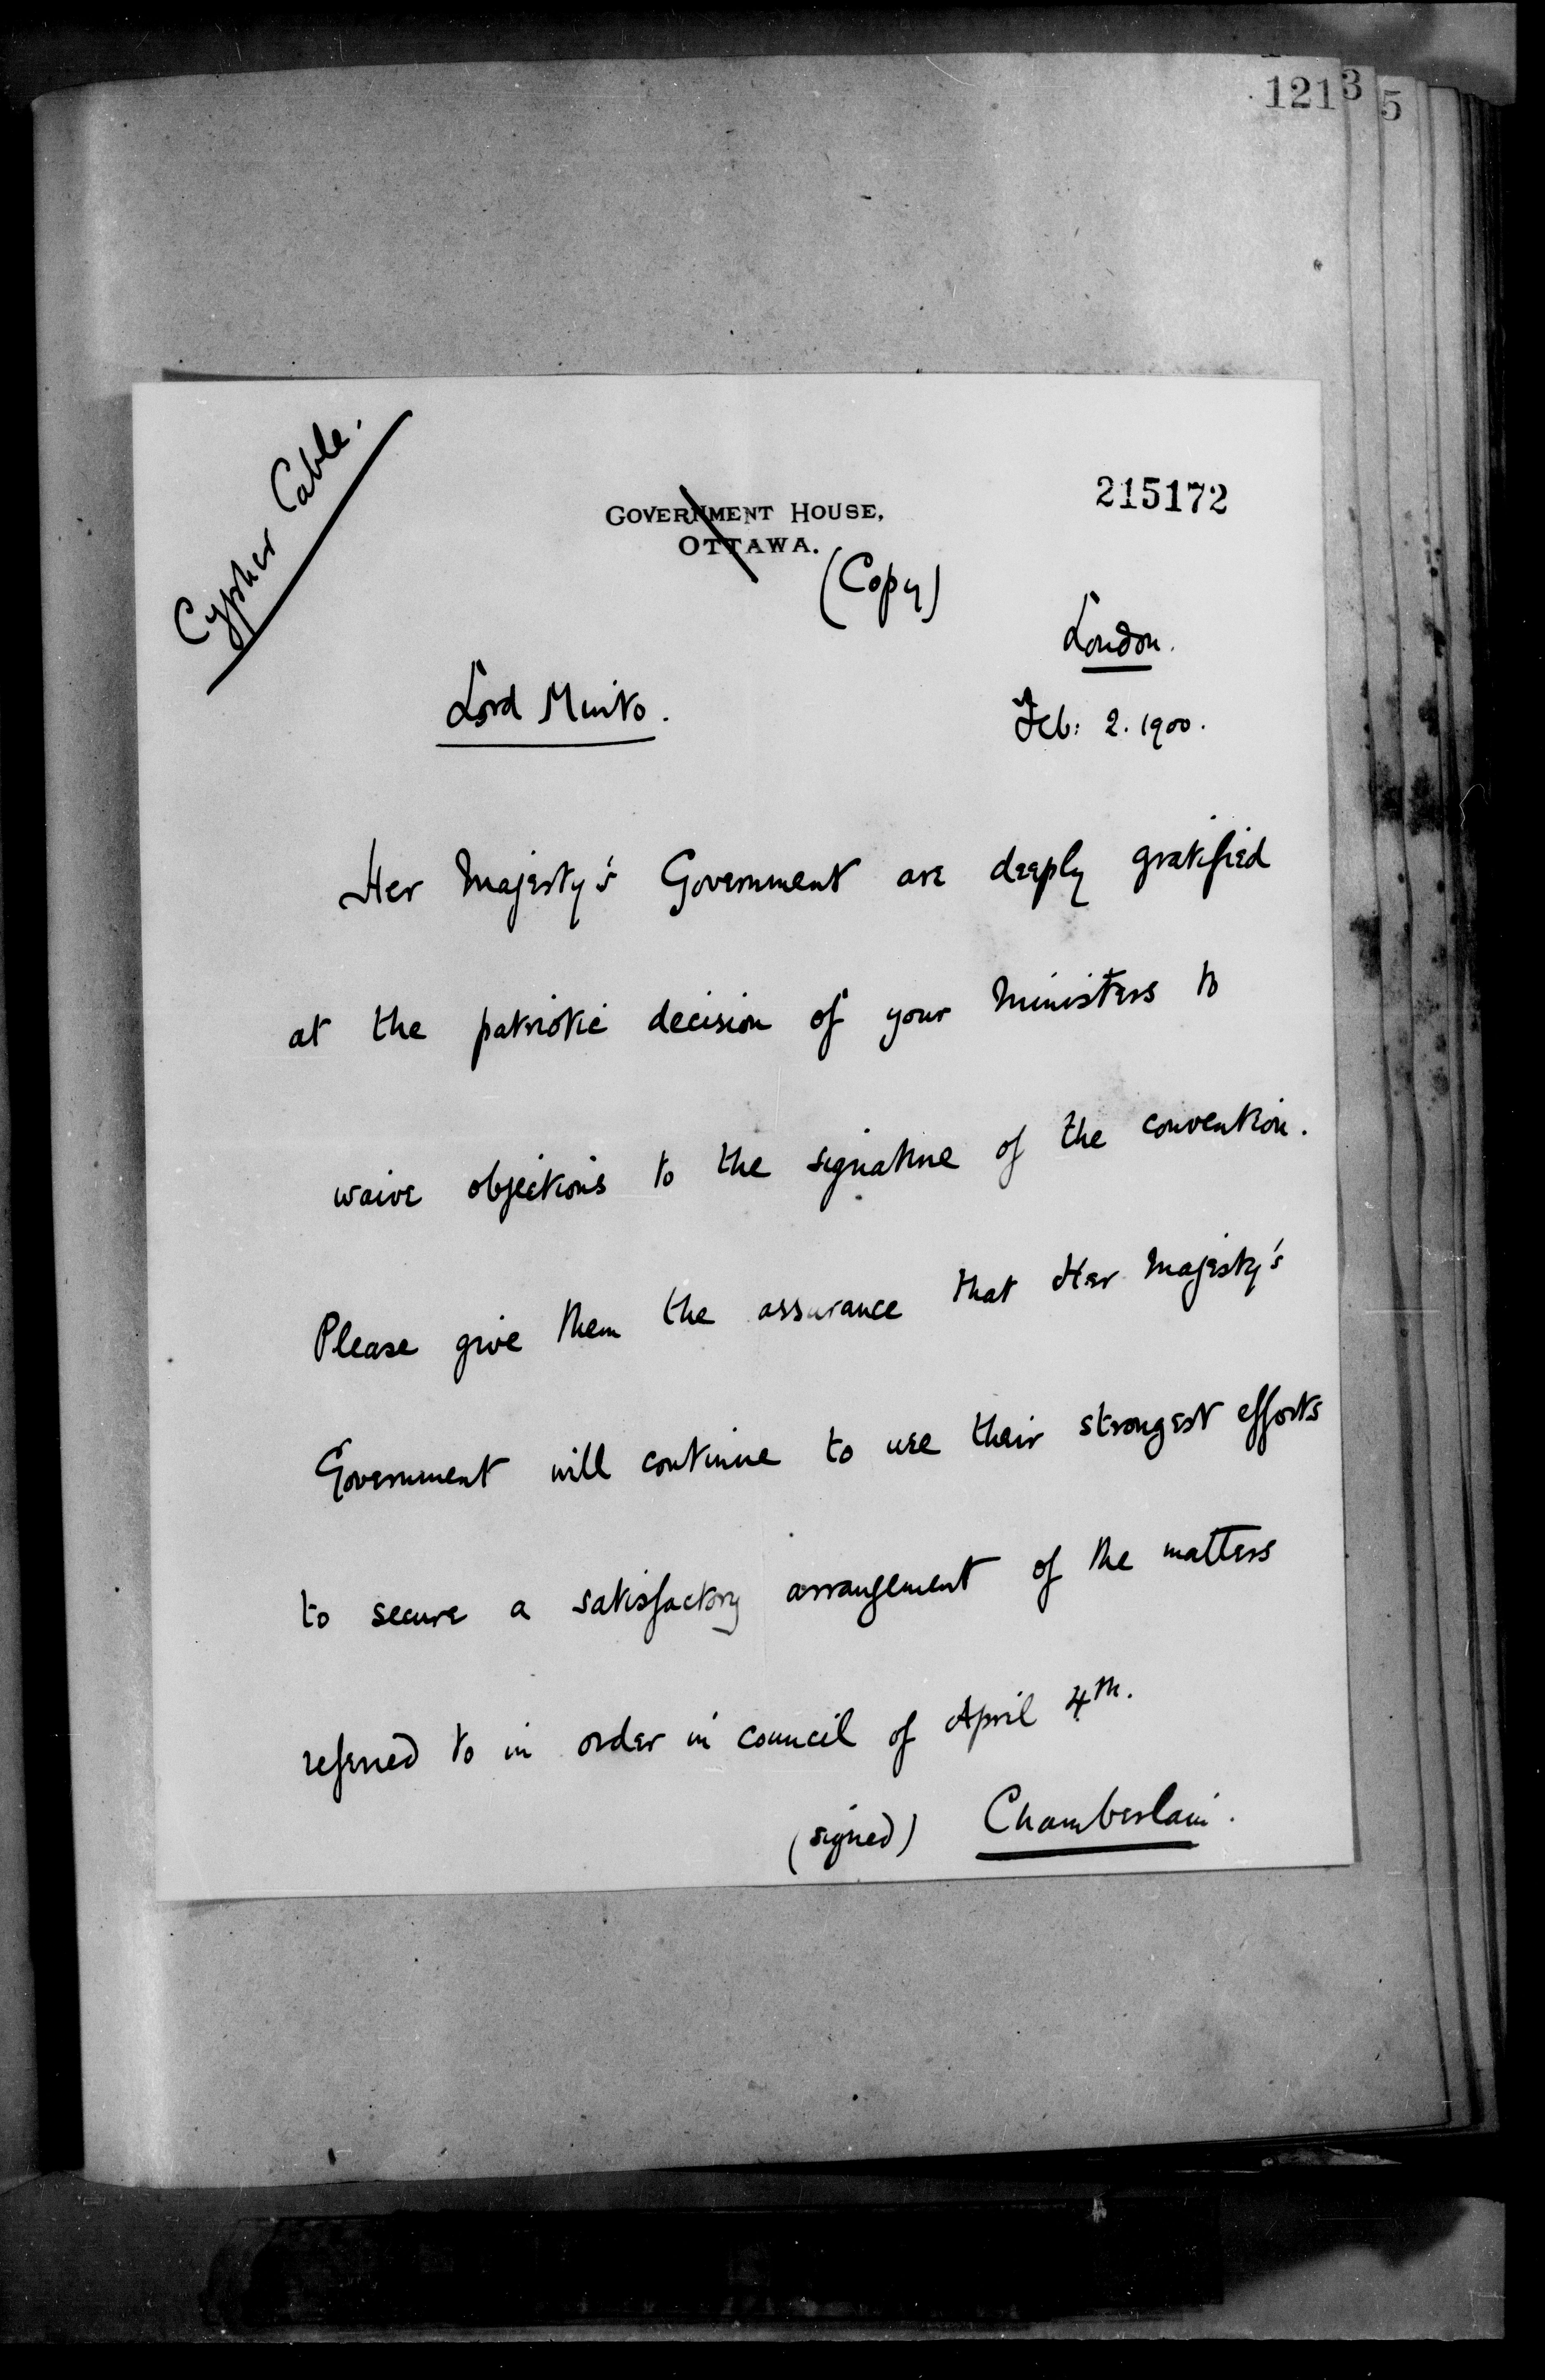 1213 5
Cypher Cable.
215172
GOVERNMENT HOUSE,
OTTAWA.
(Copy)
London.
Lord Minto.
Feb: 2. 1900.
Her Majesty's Government are deeply gratified
at the patriotic decision of your Ministers to
waive objections to the signature of the convention.
Please give them the assurance that Her Majesty's
Government will continue to use their strongest efforts
to secure a satisfactory arrangement of the matters
referred to in order in council of April 4th.
(signed) Chamberlain.